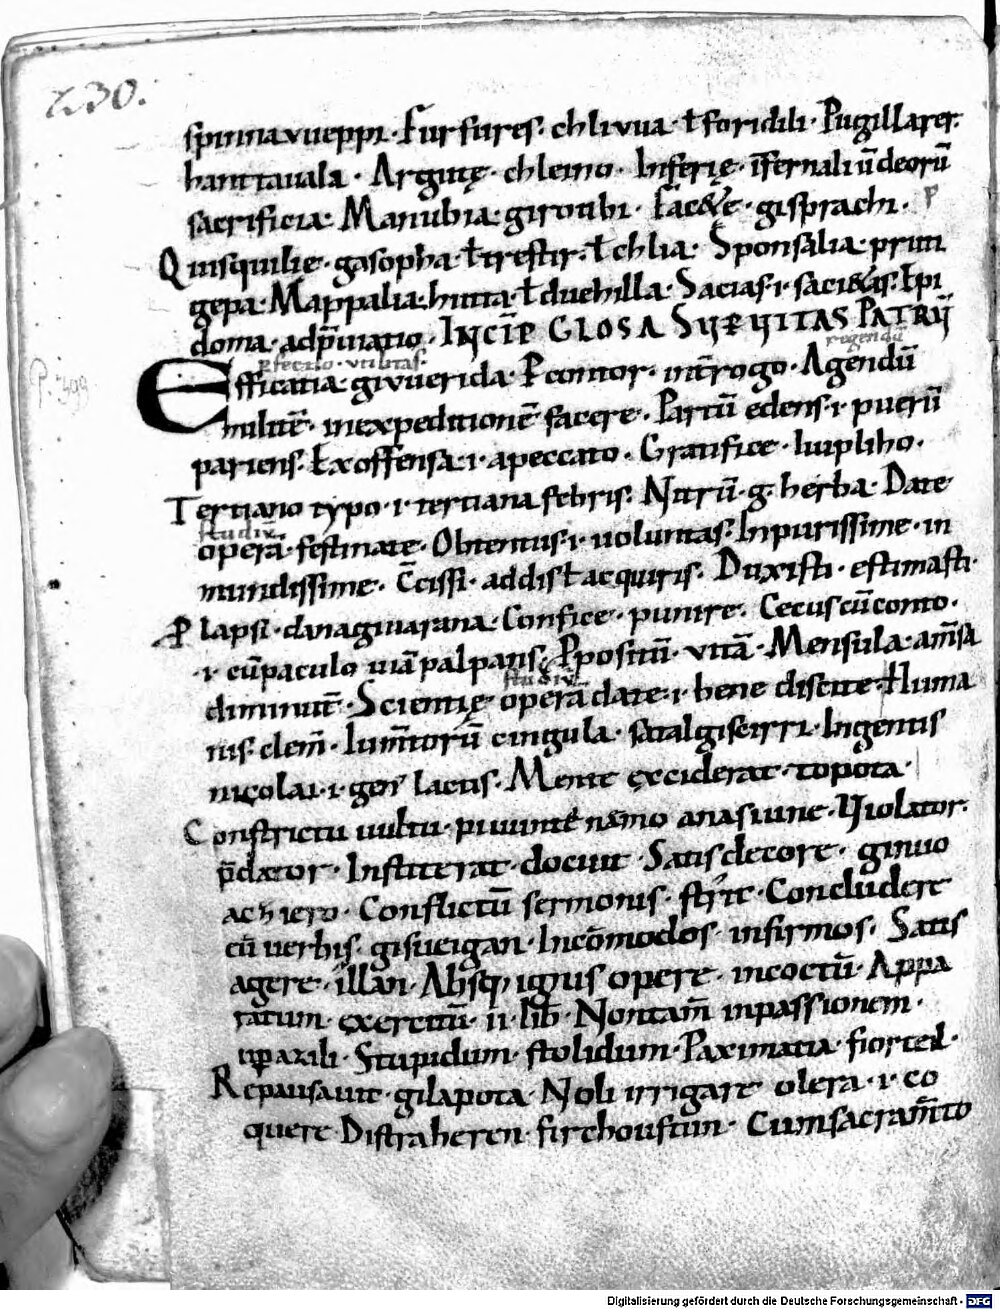 230.
spinna vueppi · Furfures · chlivua · ł foridili · Pugillares ·
hanttauala · Argutę · chleino · Inferię · īfernaliū deorū
sacrificia · Manubia · girouibi · ł ac&e · gisprachi · P
Quisquilie · gasopha · ł irestir · ł chlia · Sponsalia · prim
gepa · Mappalia · hutta · ł duchilla · Sacias · i · saci&as · Epi
doma · adp̄inatio · INCIP̄ GLOSA SVP VITAS PATRV̄
P. 393
pfectio · utilitas · regendū
Efficatia · givuerida · Pcontor · int̄rogo · Agendū
militē · inexpeditionē facere · Partū edens · i · puerū
pariens · Ex offensa · i · apeccato · Gratifice · lupliho ·
Tertiano typo · i · tertiana febris · Nitrū · g · herba · Date
studiū
operā · festinate · Obtentus · i · uoluntas · Inpurissime · in
mundissime · C̄cissi · addis ł acquiris · Duxisti · estimasti ·
Plapsi · danagiuuarana · Confice · punire · Cecus cū conto ·
· i · cū paculo uiā palpans · Ppositū · vitā · Mensula · am̄sa
studiū
diminutē · Scientię operā date · i · bene discite · Huma
nis · clem̄ · lum̄torū cingula · satalgiscirri · Ingentis
nicolai · i · gen̄ lactis · Mente exciderat · topota ·
Constrictu uultu · piuuntēnēmo anasiune · Violator ·
p̄dator · Institerat · docuit · Satis decore · ginuo
achiero · Conflictū sermonis · strit · Concludere
cū verbis · gisueigan · Incōmodos · infirmos · Satis
agere · illan · Absq; ignis opere · incoctū · Appa
ratum · exercitū · ii · lib̄ · Nontam̄ inpassionem ·
upazili · Stupidum · stolidum · Paximatia · fiorteil ·
Repausauit · gilapota · Noli irrigare olera · i · co
quere Distraheren · firchoustun · Cum sacram̄to
Digitalisierung gefördert durch die Deutsche Forschungsgemeinschaft - DFG